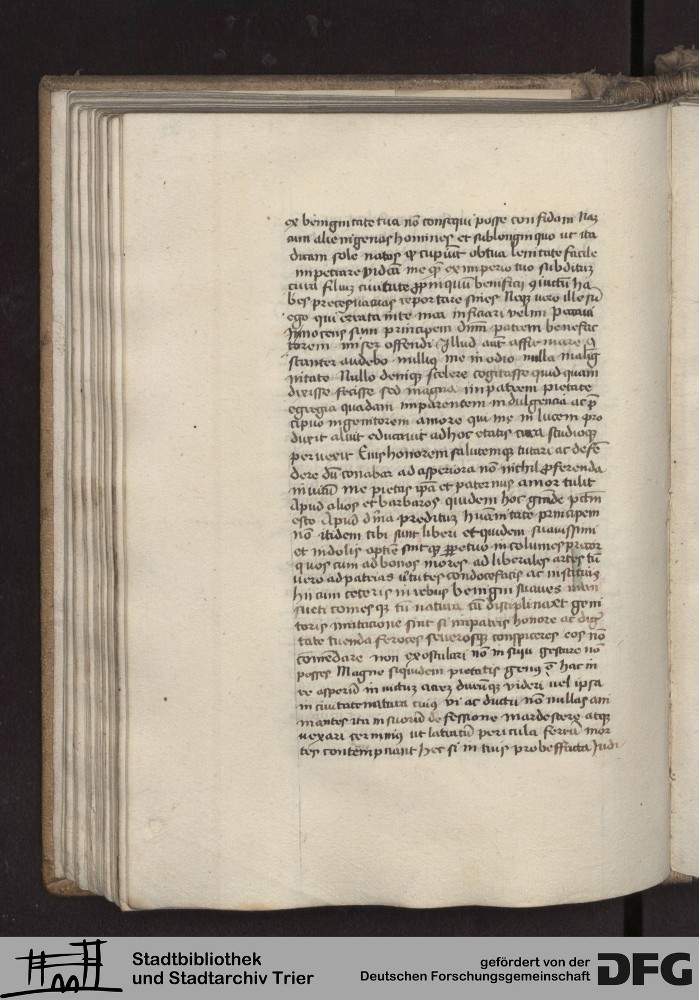 ex benignitate tua nō consequi posse confidam Naz
cum alienigenas homines et sub longinquo ut ita
dicam sole natos
lenitate facile
impetrare me ex imperio tuo subditū
cuiꝯ filiuꝫ civitate benificij
bes preces vacuas reportare sines Neqꝫ vero ille sū
ego qui errata inte mea inficiari velim peccaui
Innocens sum principem dnm̄ patrem benefac
torem miser offendi Illud aut affirmare
stanter audebo nullius me in odio nulla malig
nitate Nullo denique scelere cogitasse quid quam
dixisse fecisse sed magna in patrem pietate
egregia quadam in parentem indulgencia ac p̄
cipuo in genitorem amore qui me in lucem pro
duxit aluit educauit ad hoc etatis cura studioqꝫ
peruexit Eius honorem salutemque tutari ac defē
dere dū conabar ad asperiora nō nichil proferenda
inuitū me pietas ip̄a et paternus amor tulit
Apud alios et barbaros quidem hoc grande
esto Apud preditum principem
nō itidem tibi sunt liberi et quidem suauissimi
et indolis sint incolumes precor
quos cum ad bonos mores ad liberales artes tū
vero ad patrias condocefacis ac instituis
hii cum ceteris in rebus benigni suaues man
sueti comes qꝫ tū natura tū disciplina et geni
toris imitacione sint si in patris honore ac dig
tate tuenda feroces seuerosqꝫ conspiceres eos nō
comēdare non exosculari nō in sinu gestare nō
posses Magne siquidem pietatis genus hac in
re asperū in uituꝫ acrem videri uel ipsa
in ciuitate natura cuius vi ac ductu nō nullas ani
mantes ita in suorū defessione inardescere atqꝫ
uexari cernimus ut pericula mor
tes contempnant hec si in tuis Judi
Stadtbibliothek
und Stadtarchiv Trier
gefördert von der
Deutschen Forschungsgemeinschaft
DFG